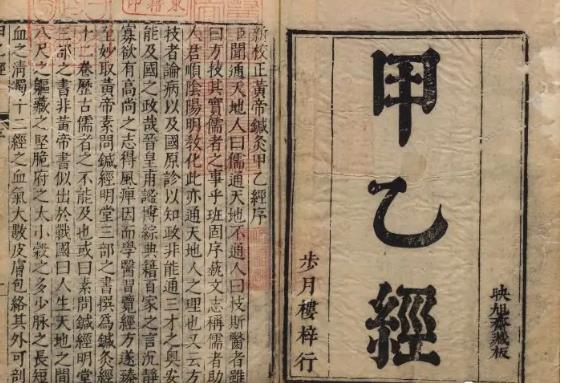 映旭齋藏板
甲乙經
步月樓梓行
新校正黃帝鍼灸甲乙經序
臣聞通天地人曰儒通天地不通人曰技斯醫者雖
曰方技其實儒者之事乎班固序藝文志稱儒者助
人君順陰陽明教化此亦通天地人之理也又云方
技者論病以及國原診以知政非能通三才之奧安
能及國之政哉晉皇甫謐博綜典籍百家之言沉靜
寡欲有高尚之志得風痺因而學醫習覽經方遂臻
至妙取黃帝素問鍼經明堂三部之書撰為鍼灸經
十二卷歷古儒者之不能及也或曰素問鍼經明堂
三部之書非黃帝書似出於戰國曰人生天地之間
八尺之軀藏之堅脆府之大小穀之多少脈之長短
血之清濁十二經之血氣大數皮膚包絡其外可剖
甲乙經